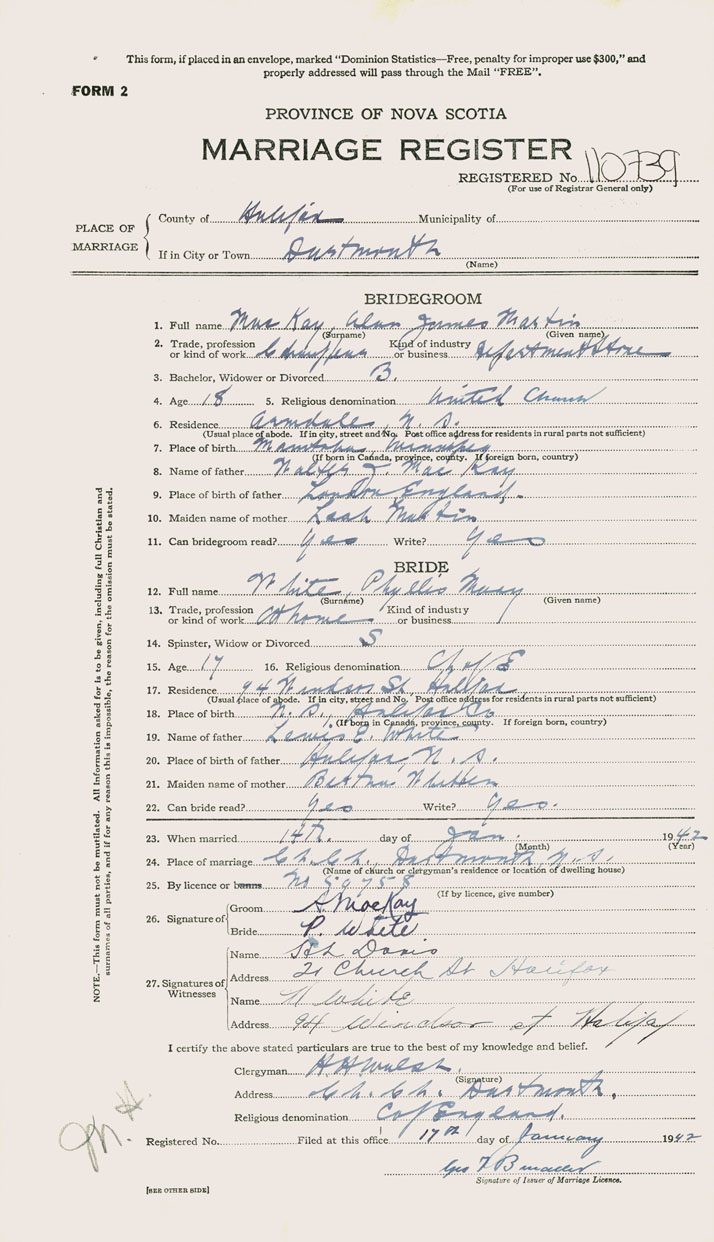 This form, if placed in an envelope, marked "Dominion Statistics—Free, penalty for improper use $300," and
properly addressed will pass through the Mail "FREE".
FORM 2
PROVINCE OF NOVA SCOTIA
MARRIAGE REGISTER
REGISTERED No. 110739
(For use of Registrar General only)
PLACE OF MARRIAGE
County of Halifax Municipality of
If in City or Town Dartmouth
(Name)
BRIDEGROOM
1. Full name MacKay, Alan James Martin
(Surname) (Given name)
2. Trade, profession or kind of work Kind of industry or business Department store
3. Bachelor, Widower or Divorced B.
4. Age 18 5. Religious denomination United Church
6. Residence Armdale, N. S.
(Usual place of abode. If in city, street and No. Post office address for residents in rural parts not sufficient)
7. Place of birth Manitoba, Winnipeg
(If born in Canada, province, county. If foreign born, country)
8. Name of father Walter MacKay
9. Place of birth of father London England.
10. Maiden name of mother Leah Martin
11. Can bridegroom read? Yes Write? Yes
BRIDE
12. Full name White, Phyllis Mary
(Surname) (Given name)
13. Trade, profession or kind of work At home Kind of industry or business
14. Spinster, Widow or Divorced S
15. Age 17 16. Religious denomination Ch of E
17. Residence 94 Windsor St, Halifax
(Usual place of abode. If in city, street and No. Post office address for residents in rural parts not sufficient)
18. Place of birth N. S., Halifax Co
(If born in Canada, province, county. If foreign born, country)
19. Name of father Lewis E. White
20. Place of birth of father Halifax, N. S.
21. Maiden name of mother Bertha
22. Can bride read? Yes Write? Yes.
23. When married 14th day of Jan. 1942
(Month) (Year)
24. Place of marriage Ch. Ch., Dartmouth, N. S.
(Name of church or clergyman's residence or location of dwelling house)
25. By licence or banns No 59758
(If by licence, give number)
26. Signature of
Groom A. MacKay
Bride P. White
27. Signatures of Witnesses
Name Davis
Address 21 Church St Halifax
Name White
Address 94 Windsor st Halifax
I certify the above stated particulars are true to the best of my knowledge and belief.
Clergyman H. H. Walsh.
(Signature)
Address Ch. Ch. Dartmouth,
Religious denomination C of England.
Registered No. Filed at this office 17th day of January 1942
Signature of Issuer of Marriage Licence.
[SEE OTHER SIDE]
NOTE.—This form must not be mutilated. All information asked for is to be given, including full Christian and
surnames of all parties, and if for any reason this is impossible, the reason for the omission must be stated.